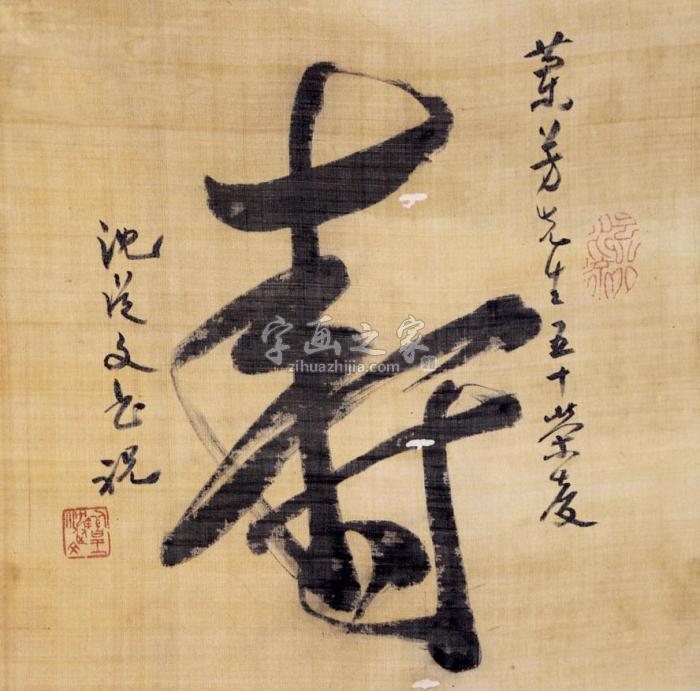 蘭芳先生五十榮慶
壽
沈從文書祝
字画之家
zihuazhijia.com